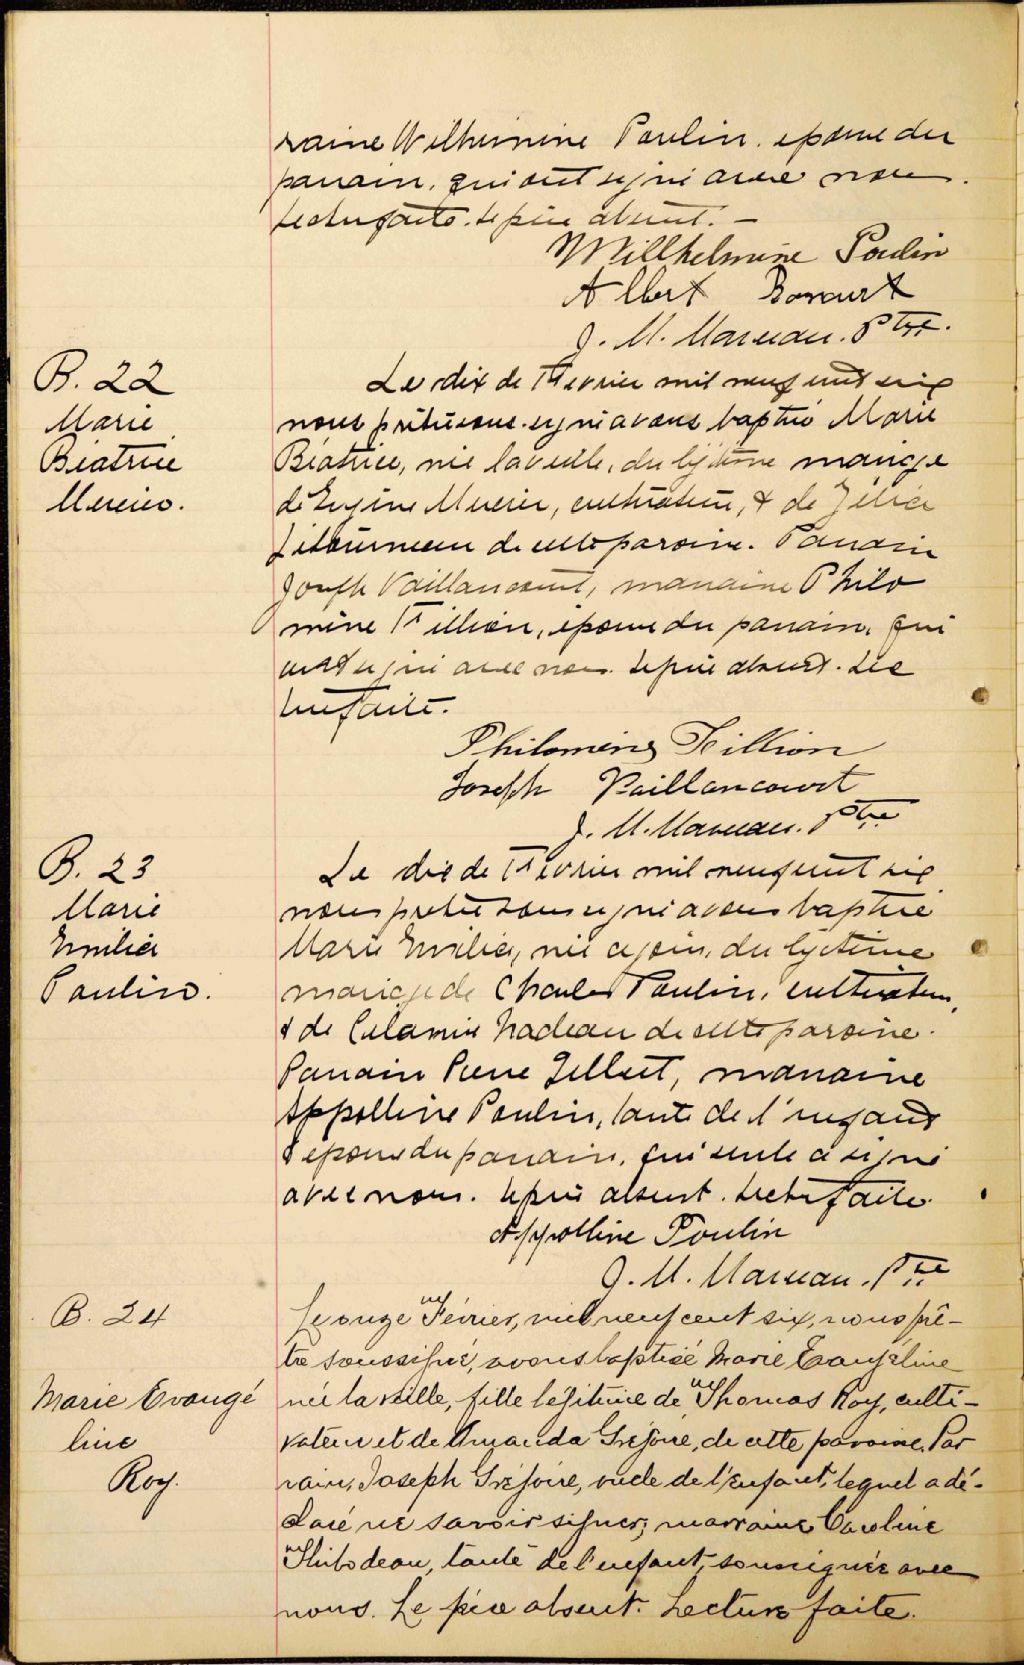 raine Wilhemine Poulin, epouse du
parrain, qui ont signé avec nous.
Lecture faite. Le père absent. —
Willhelmine Poulin
Albert
J. M. Marceau. Ptre.
B. 22
Marie
Béatrice
Mercier.
Le dix de Fevrier mil neuf cent six
nous prêtre sous-signé avons baptisé Marie
Béatrice, née la veille, du légitime mariage
d'Eugène Mercier, cultivateur, & de Zélia
Létourneau de cette paroisse. Parrain
Joseph Vaillancourt, marraine Philo
mène Fillion, épouse du parrain, qui
ont signé avec nous. Le père absent. Lec
ture faite.
Philomène Fillion
Joseph Vaillancourt
J. M. Marceau. Ptre
B. 23
Marie
Emilia
Poulin.
Le dix de Fevrier mil neuf cent six
nous pretre sous signé avons baptisé
Marie Emilia, née ce jour, du légitime
mariage de Charles Poulin, cultivateur,
& de Nadeau de cette paroisse.
Parrain Pierre Gilbert, marraine
Appolline Poulin, tante de l'enfant
& epouse du parrain, qui seule a signé
avec nous. Le père absent. Lecture faite.
Appolline Poulin
J. M. Marceau. Ptre
B. 24
Marie Evangé
line
Roy.
Le onze Février, mil neuf cent six, nous prê-
tre soussigné, avons baptisé Marie Evangéline
née la veille, fille légitime de Thomas Roy, culti-
vateur et de Amanda Grégoire, de cette paroisse. Par
rain, Joseph Grégoire, oncle de l'enfant, lequel a dé-
claré ne savoir signer; marraine Caroline
Thibodeau, tante de l'enfant, soussignée avec
nous. Le père absent. Lecture faite.